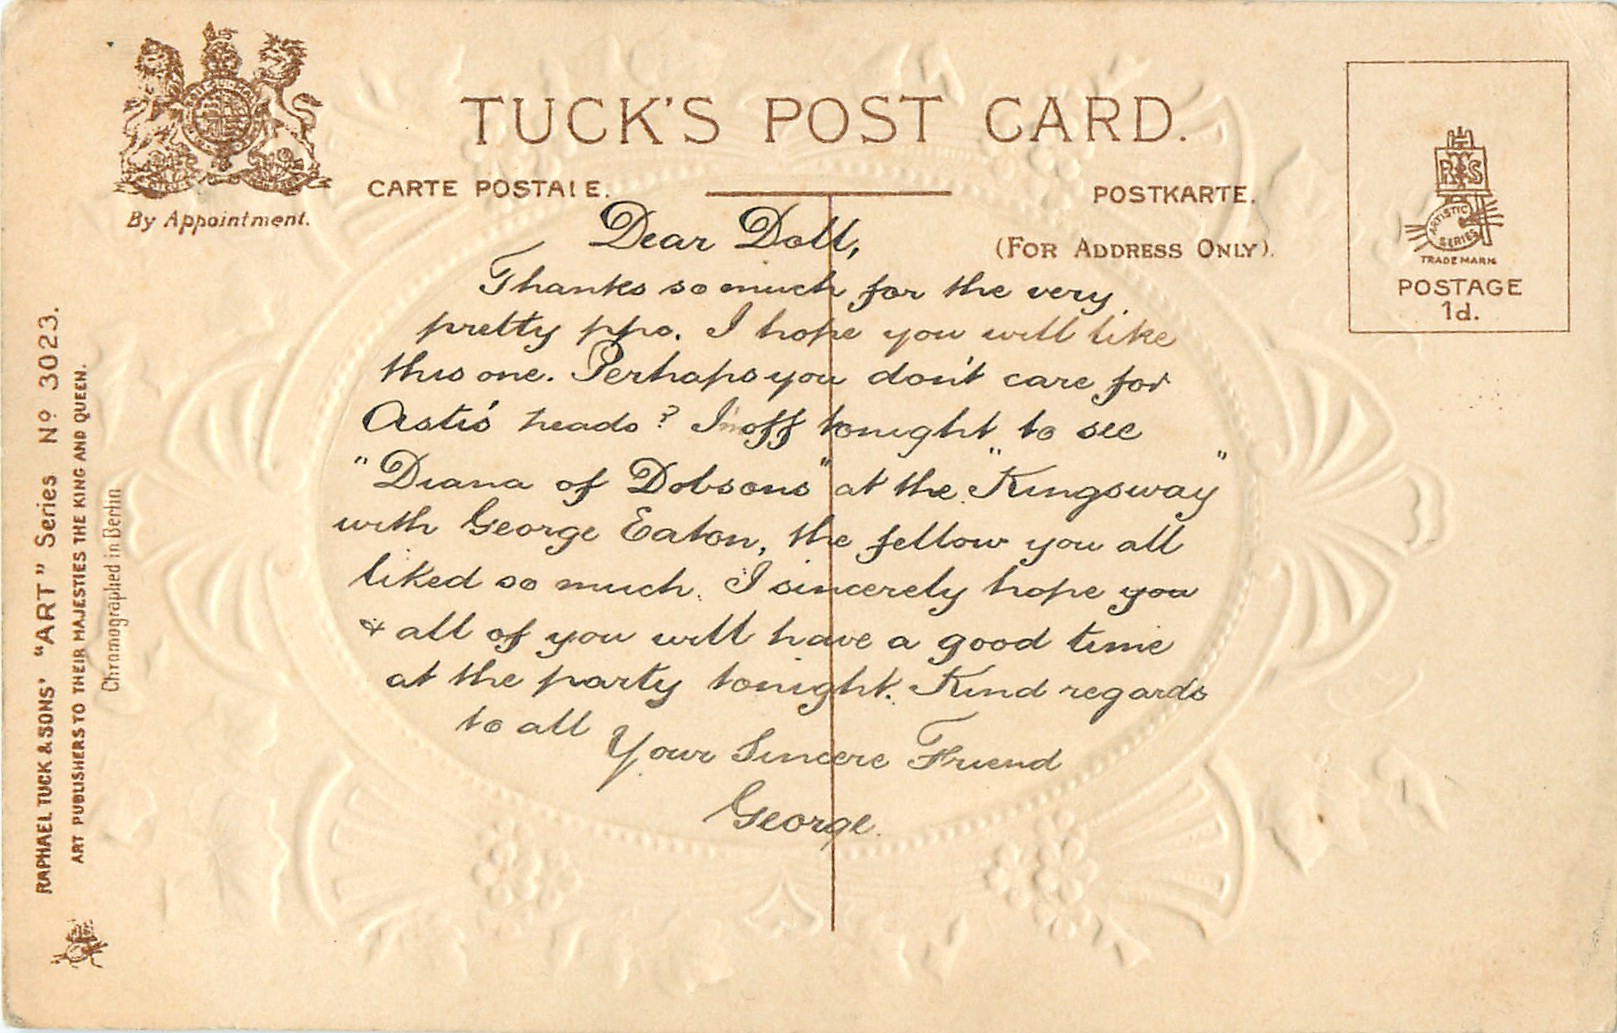 TUCK'S POST CARD.
CARTE POSTALE.
POSTKARTE.
(FOR ADDRESS ONLY).
By Appointment.
RTS
ARTISTIC
SERIES
TRADE MARK
POSTAGE
1d.
RAPHAEL TUCK & SONS' "ART" Series Nº 3023.
ART PUBLISHERS TO THEIR MAJESTIES THE KING AND QUEEN.
Chromographed in Berlin
Dear Doll,
Thanks so much for the very
pretty ppc. I hope you will like
this one. Perhaps you don't care for
Asti's heads? I'm off tonight to see
"Diana of Dobsons" at the "Kingsway"
with George Eaton, the fellow you all
liked so much. I sincerely hope you
& all of you will have a good time
at the party tonight. Kind regards
to all
Your Sincere Friend
George.